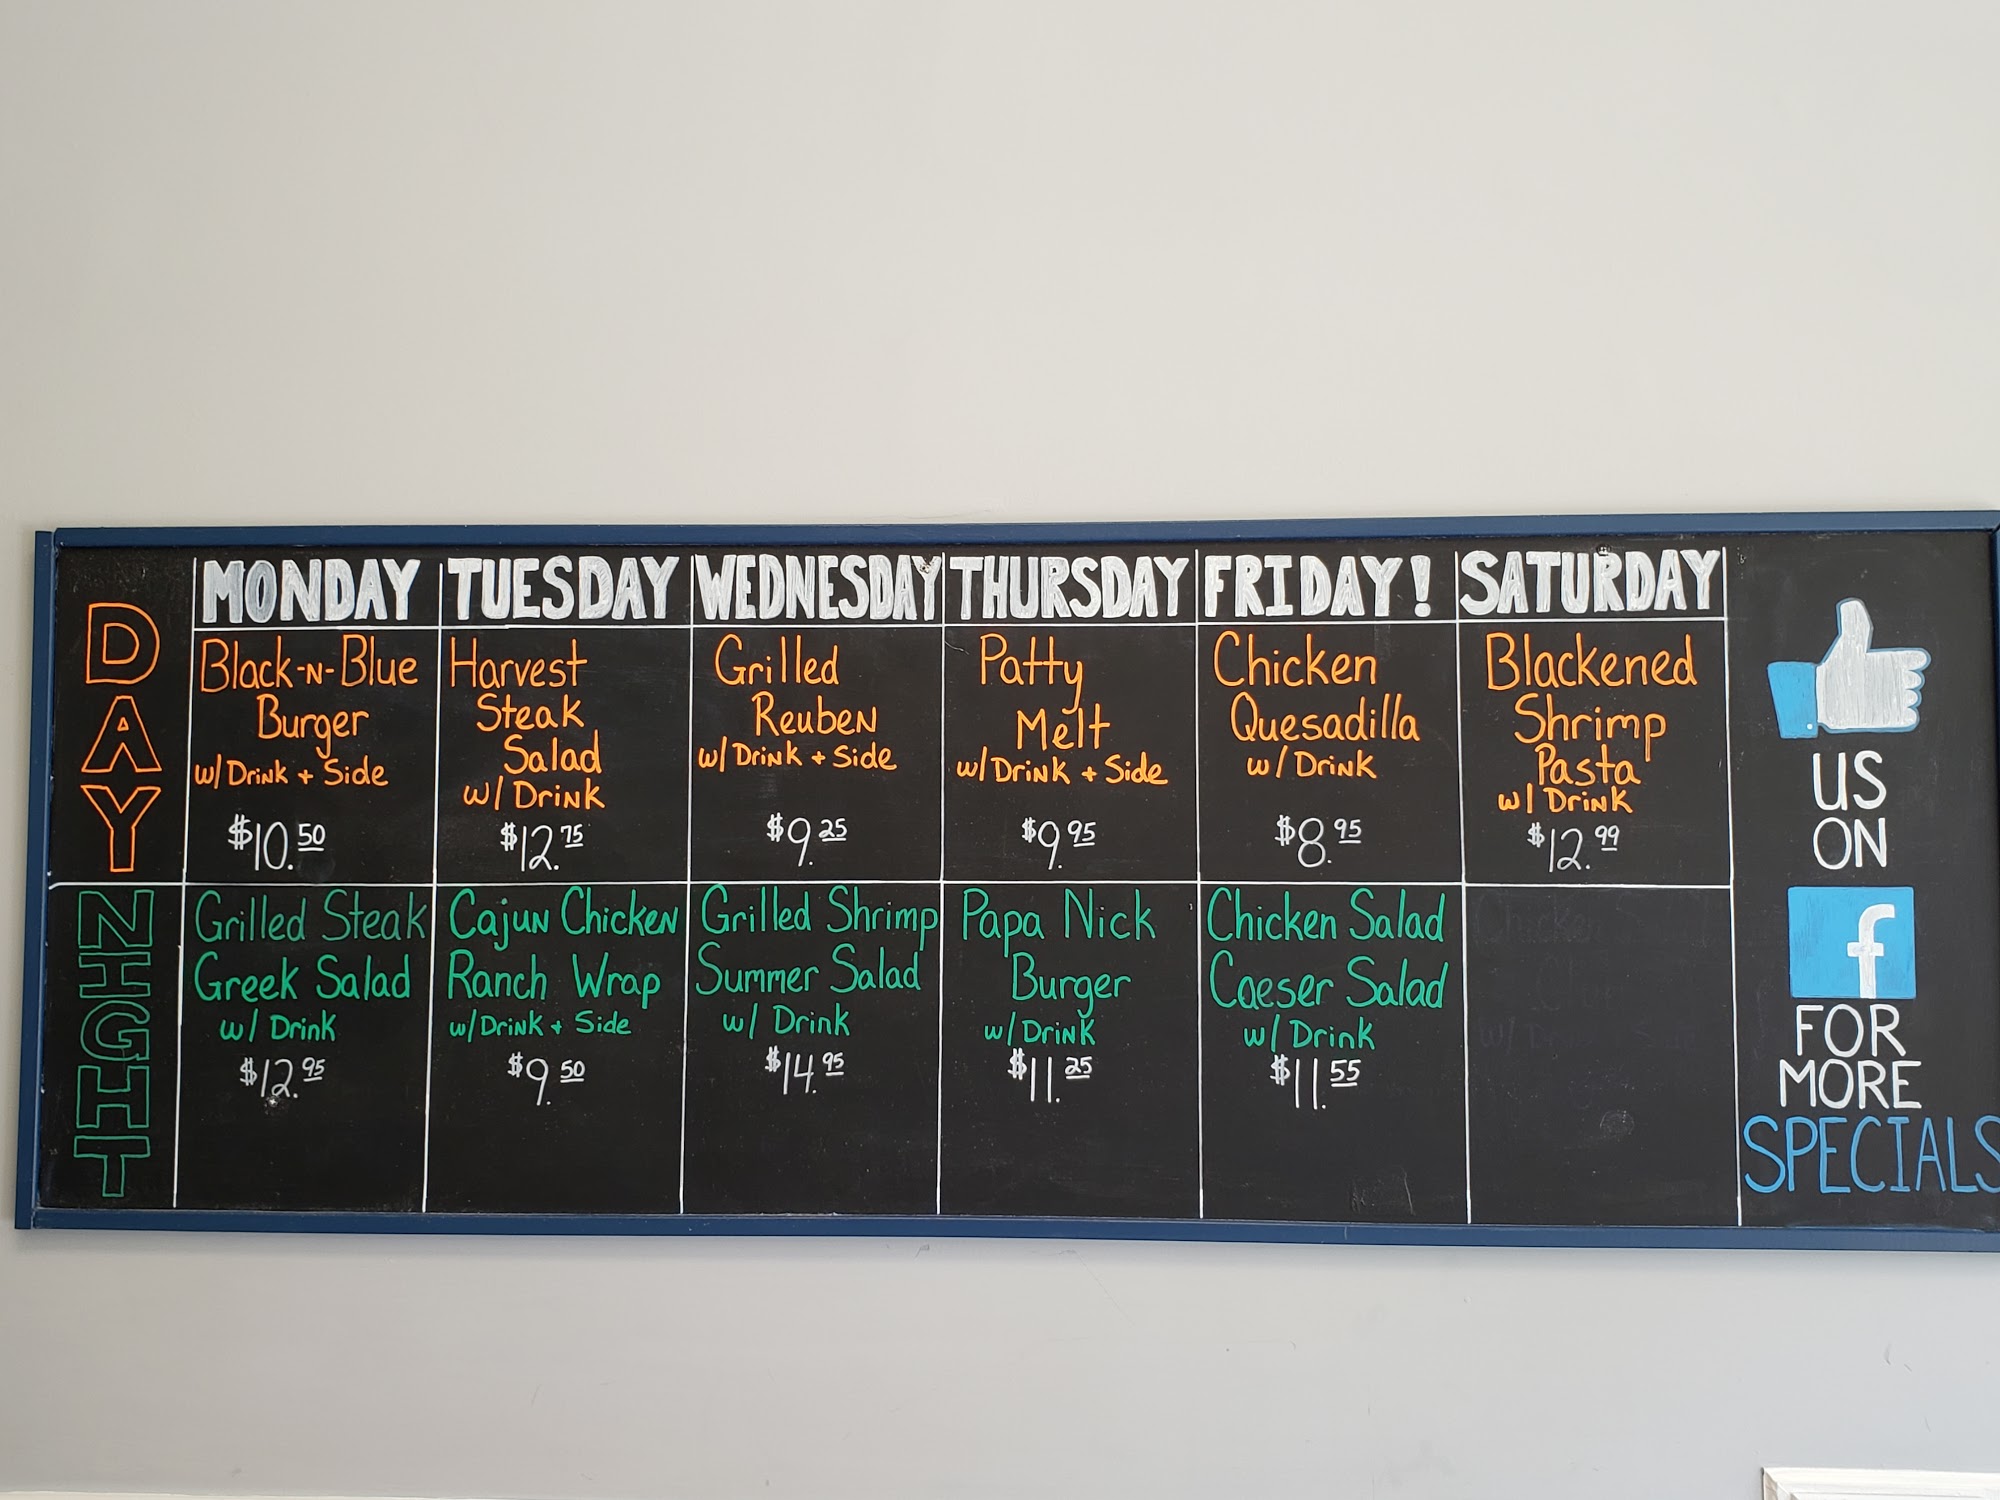 MONDAY TUESDAY WEDNESDAY THURSDAY FRIDAY! SATURDAY
DAY
Black-N-Blue
Burger
w/ Drink + Side
$10.50
Harvest
Steak
Salad
w/ Drink
$12.75
Grilled
Reuben
w/ Drink + Side
$9.25
Patty
Melt
w/ Drink + Side
$9.95
Chicken
Quesadilla
w/ Drink
$8.95
Blackened
Shrimp
Pasta
w/ Drink
$12.99
NIGHT
Grilled Steak
Greek Salad
w/ Drink
$12.95
Cajun Chicken
Ranch Wrap
w/ Drink + Side
$9.50
Grilled Shrimp
Summer Salad
w/ Drink
$14.95
Papa Nick
Burger
w/ Drink
$11.25
Chicken Salad
Caeser Salad
w/ Drink
$11.55
US
ON
f
FOR
MORE
SPECIALS